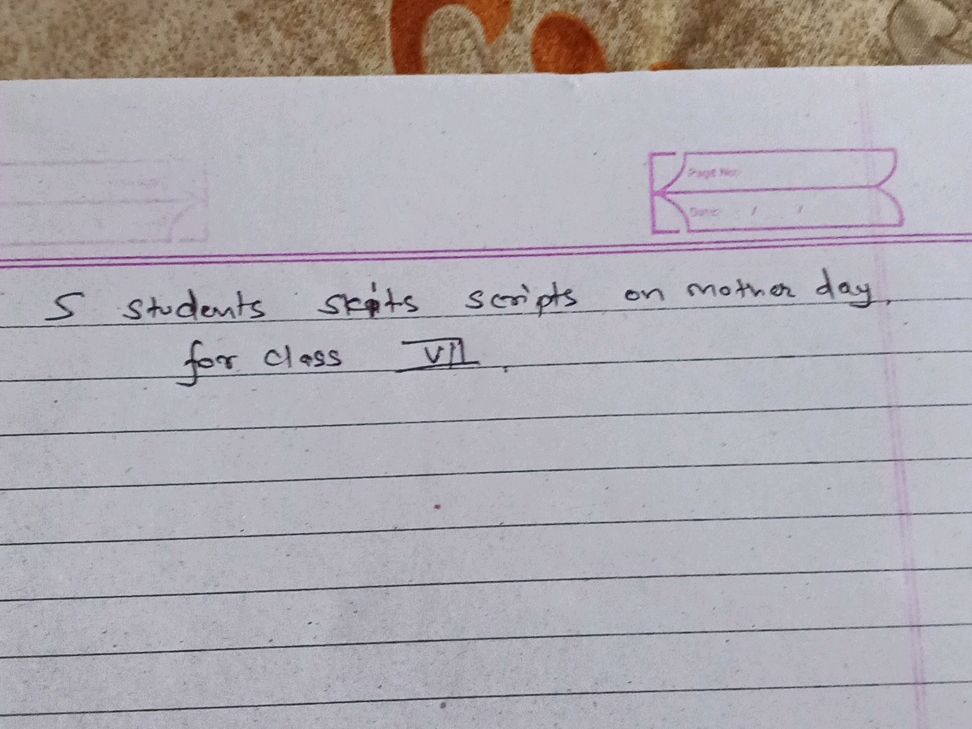 Page No.
Date: / /
5 students skits scripts on mother day,
for class VII.